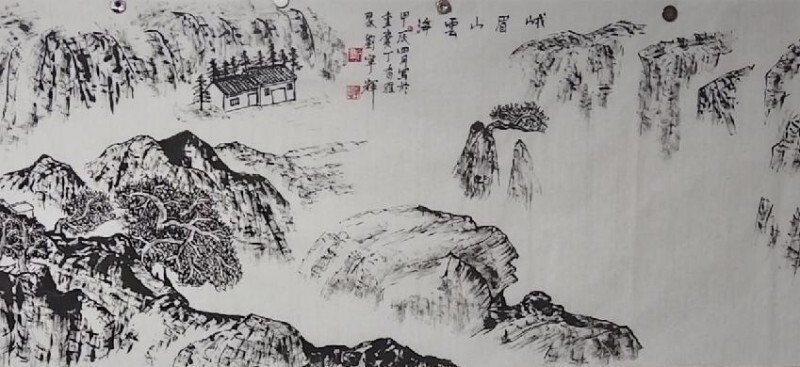 峨眉山雲海
甲辰四月寫於
重慶丁香雅
劉寧輝